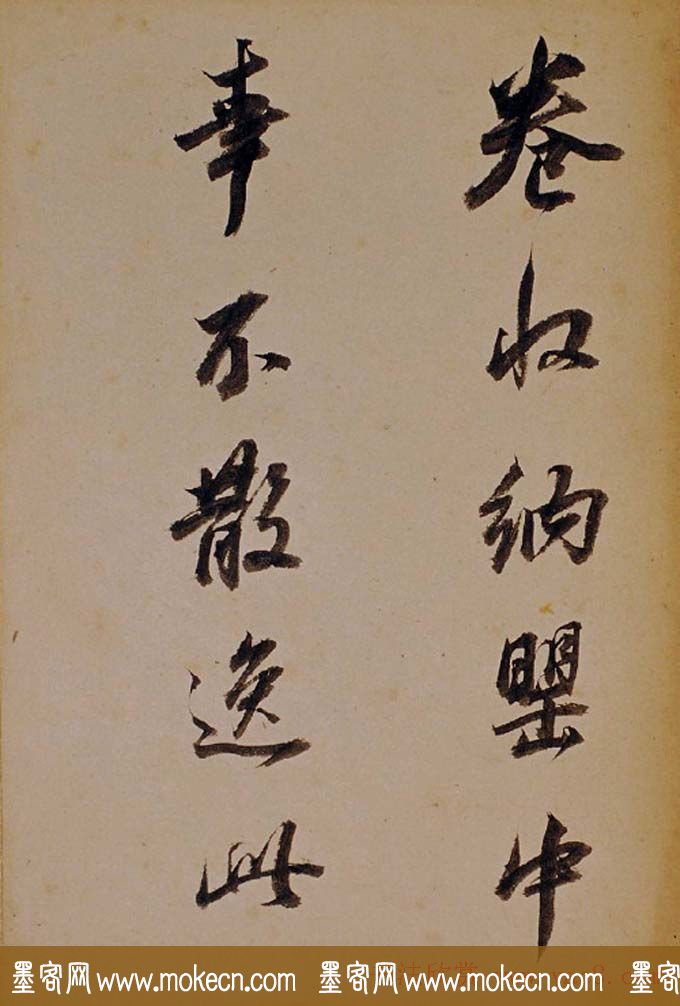 卷收納罌中
幸不散逸此
墨客网 www.mokecn.com 墨客网 www.mokecn.com